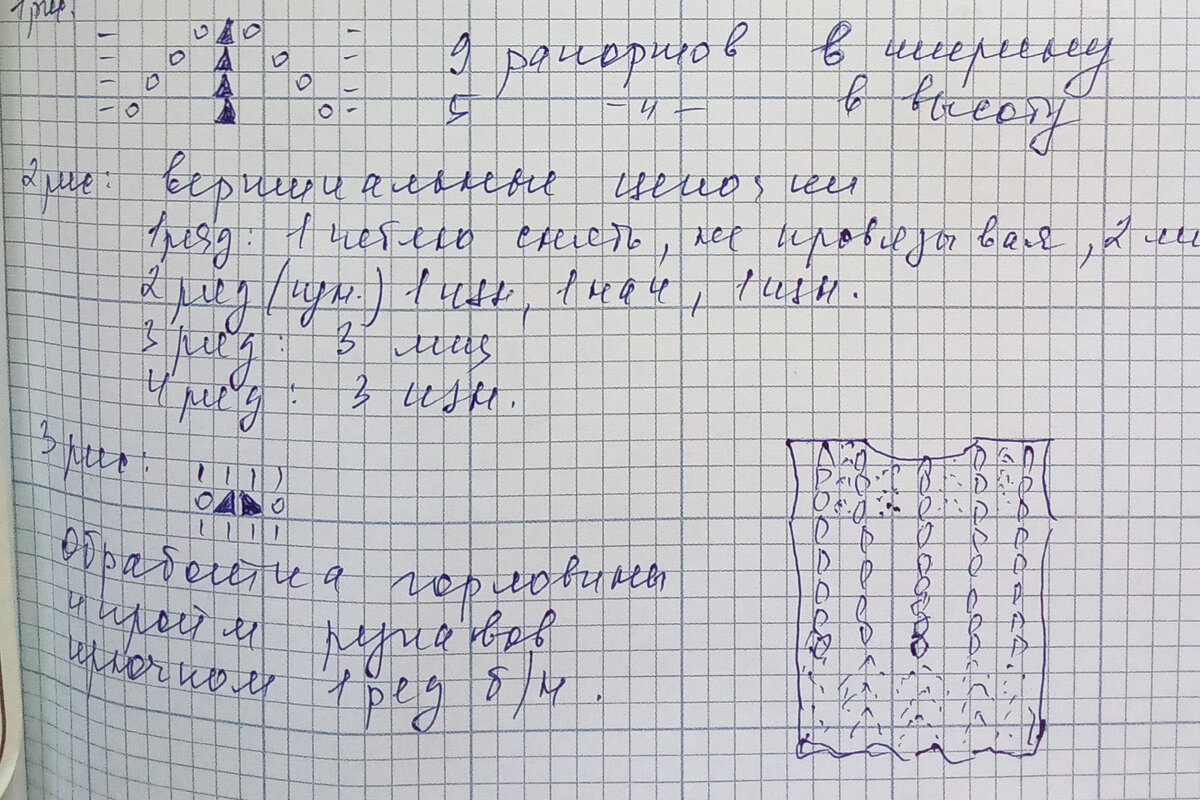 1 рис.
- o ▲ o - 9 рапортов в ширину
- o ▲ o -
- o ▲ o -
- o ▲ o - 5 -"- в высоту
2 рис: вертикальные цепочки
1 ряд: 1 петлю снять, не провязывая, 2 ли
2 ряд (изн.) 1 изн, 1 нак, 1 изн.
3 ряд: 3 лиц
4 ряд: 3 изн.
3 рис:
| | | |
o ◢ ◣ o
| | | |
обработка горловины
и пройм рукавов
крючком 1 ряд б/н.